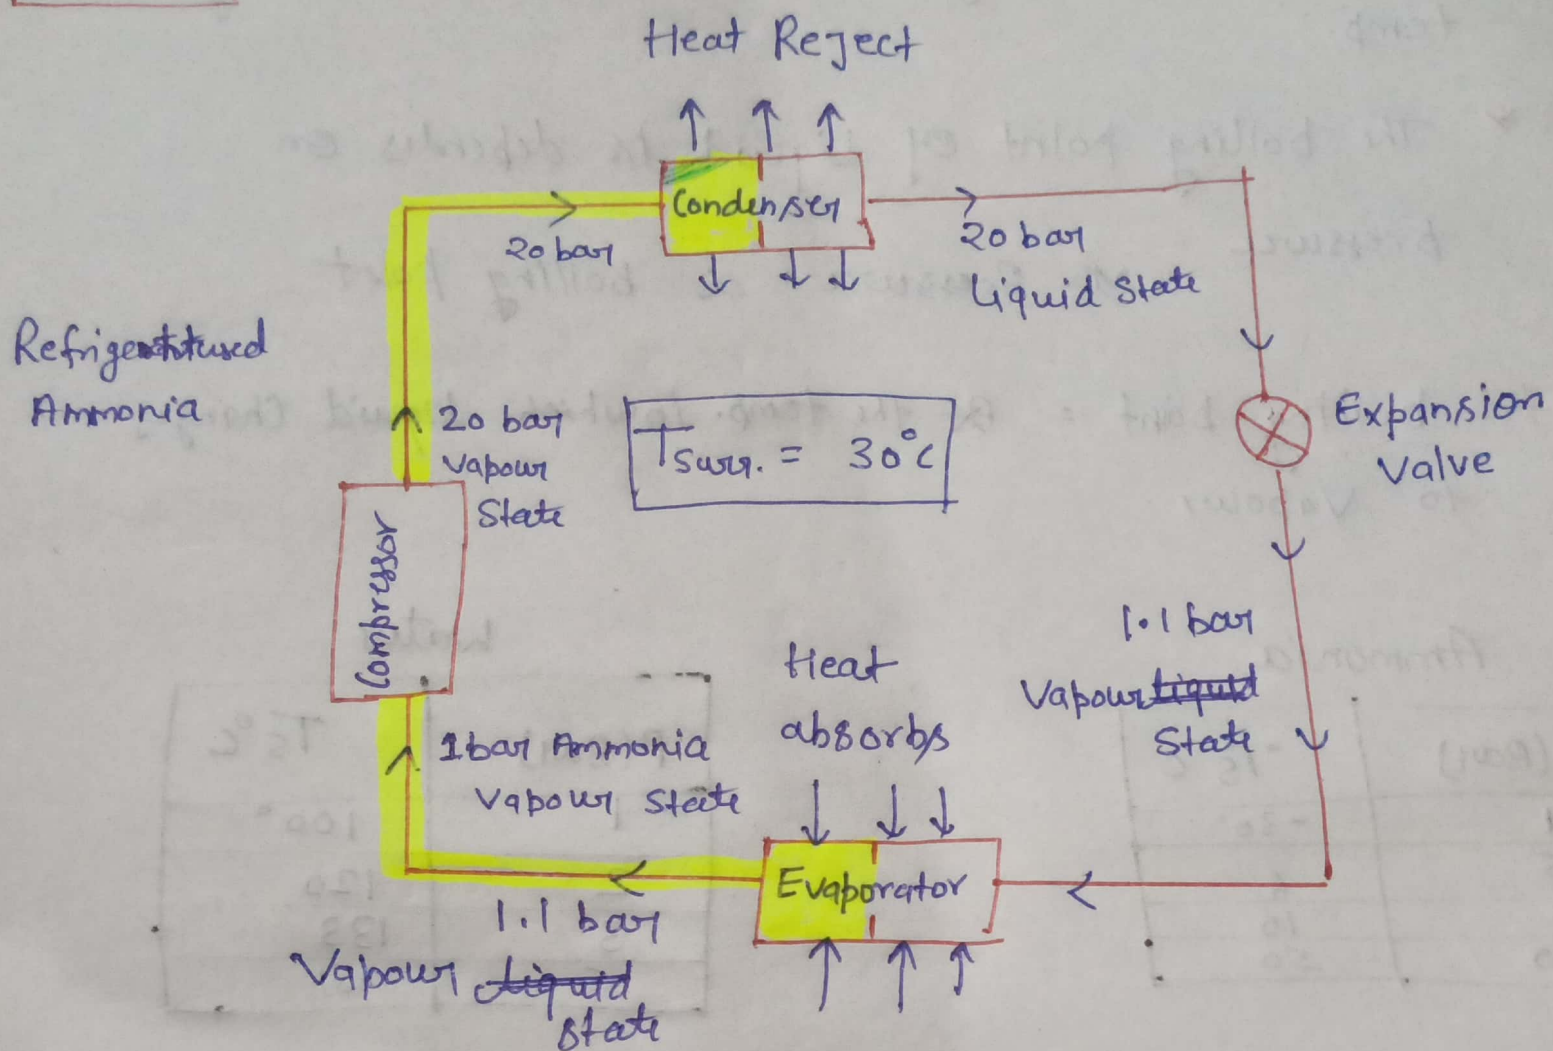 Heat Reject
Condenser
20 bar
20 bar
Liquid State
Refrigerant used
Ammonia
20 bar
Vapour
State
Tsurr. = 30°C
Expansion
Valve
Compressor
1.1 bar
Vapour Liquid
State
Heat
absorbs
1 bar Ammonia
Vapour State
Evaporator
1.1 bar
Vapour Liquid
State